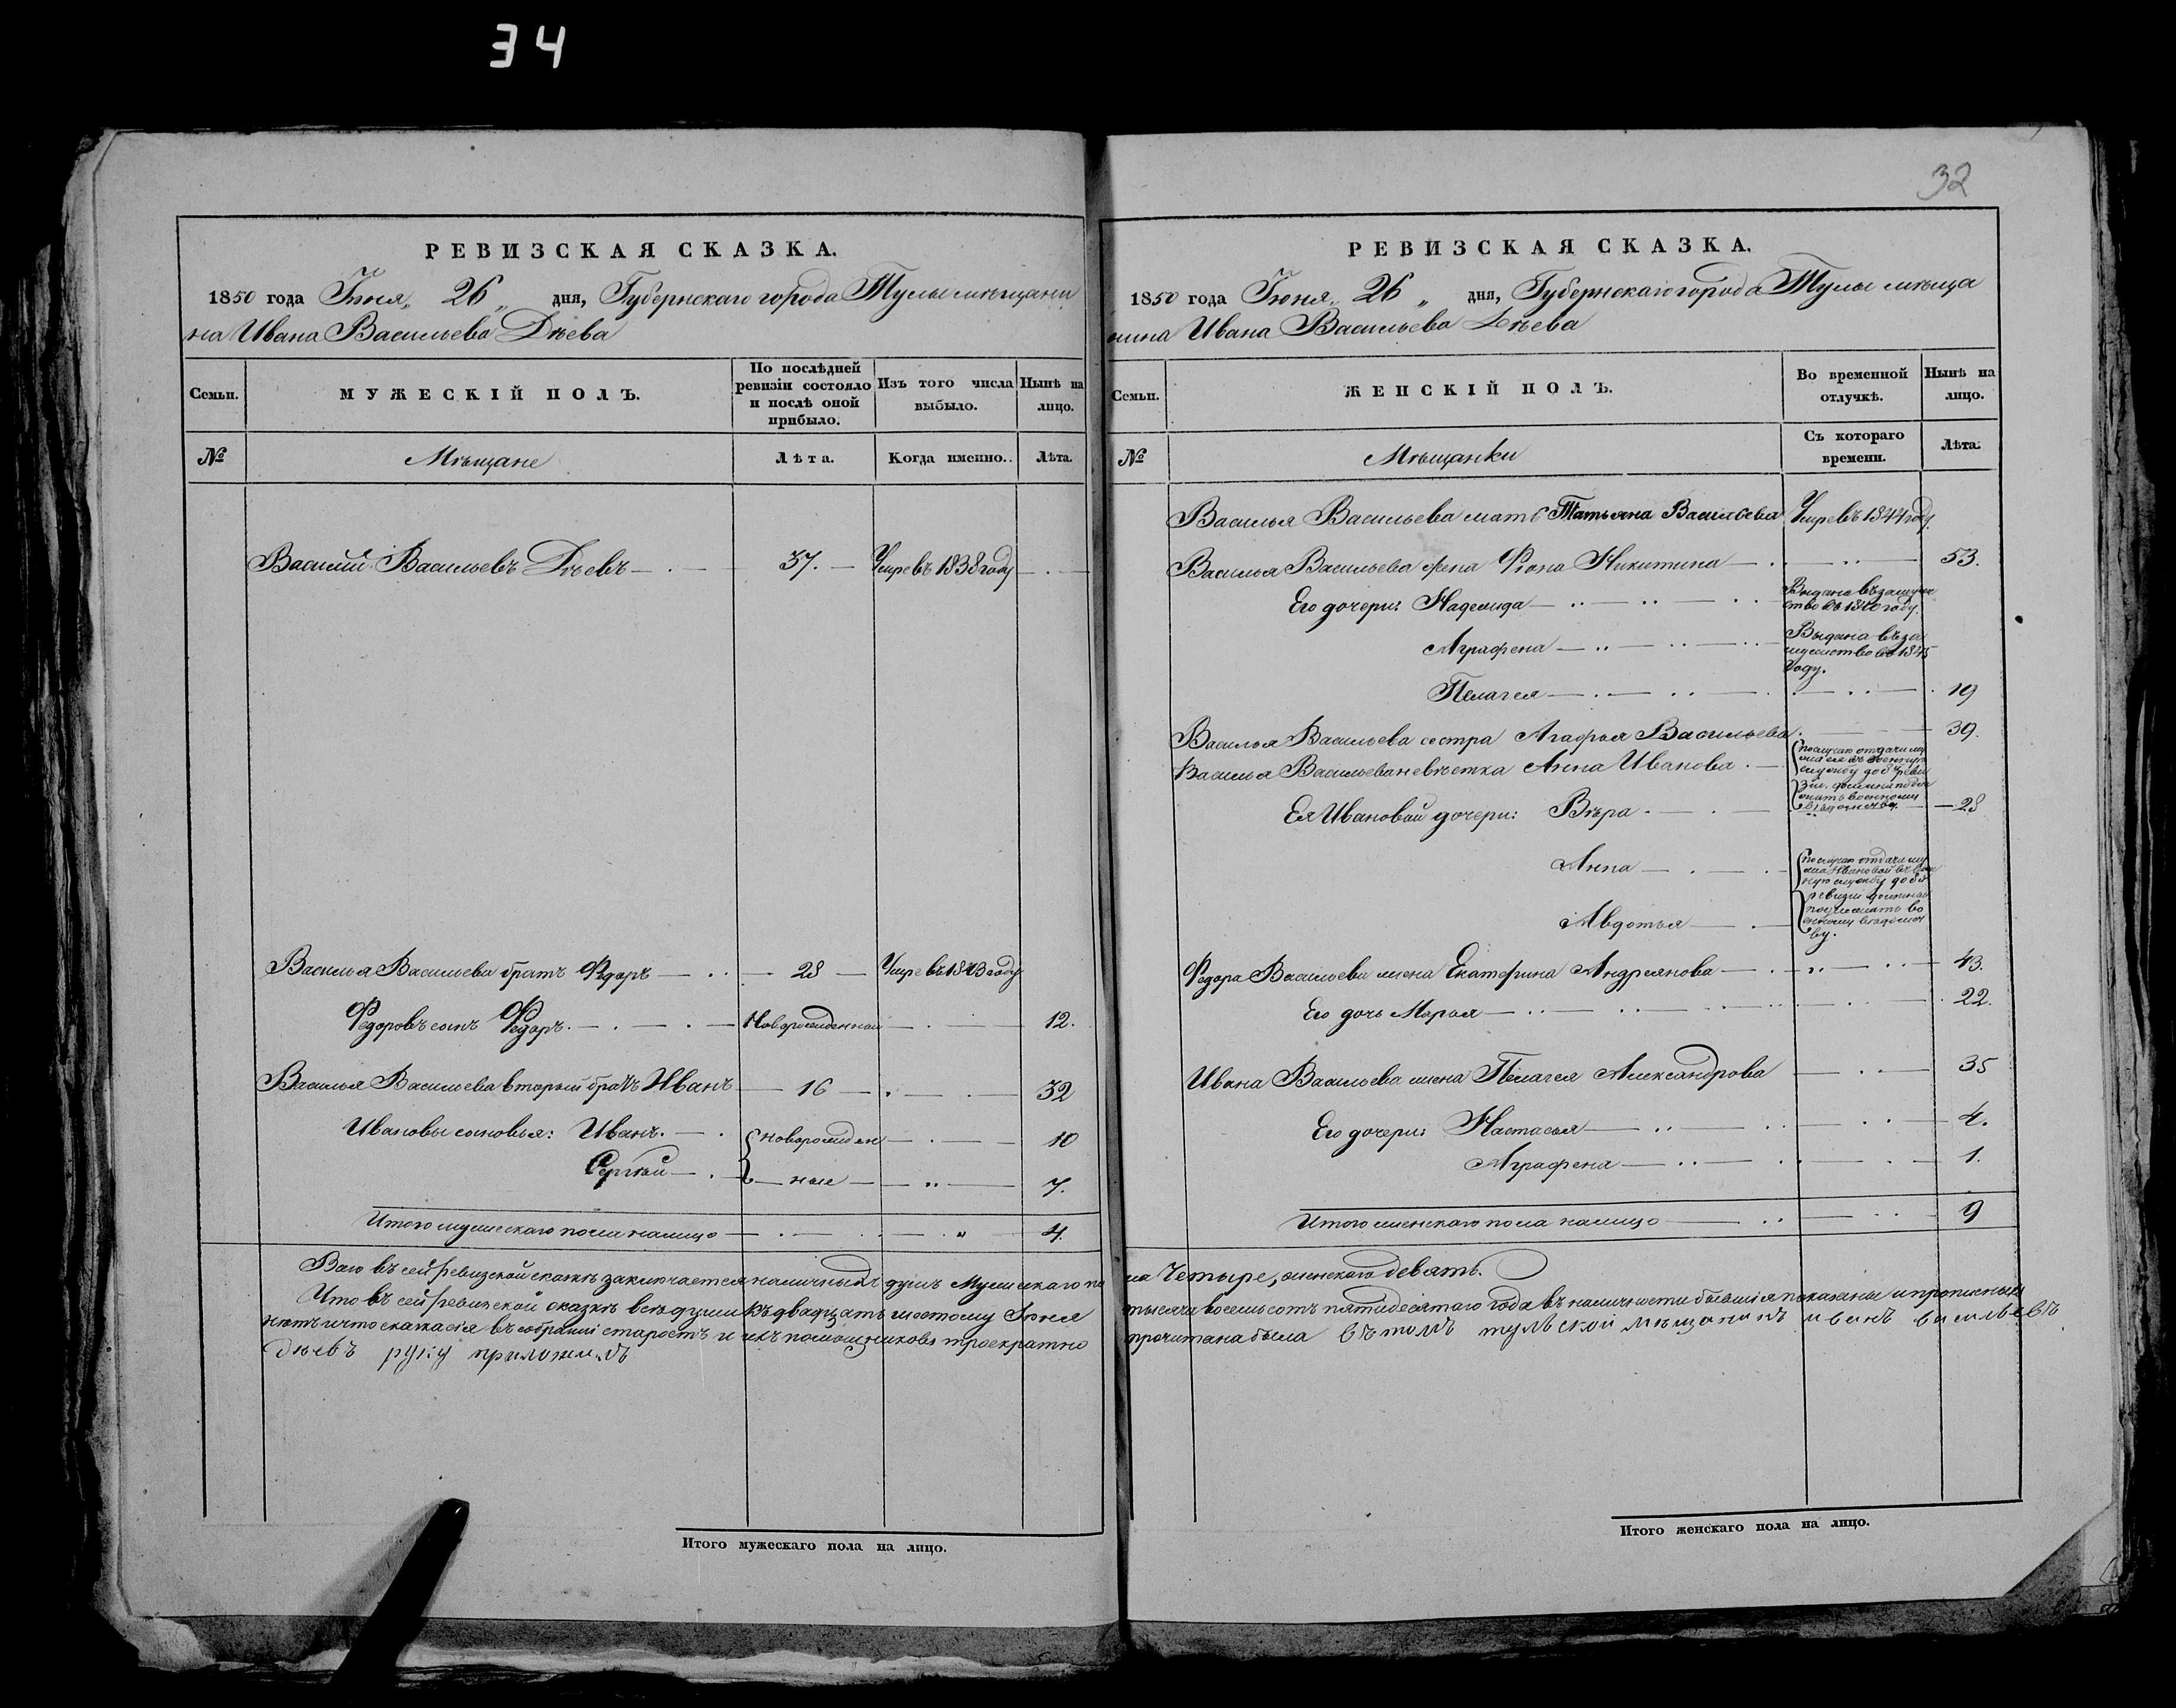 34
32
РЕВИЗСКАЯ СКАЗКА.
1850 года Іюня „ 26 „ дня, Губернскаго города Тулы мѣщани
на Ивана Васильева Дѣева
Семьи.
МУЖЕСКІЙ ПОЛЪ.
По послѣдней ревизіи состояло и послѣ оной прибыло.
Изъ того числа выбыло.
Нынѣ на лицо.
№
Мѣщане
Лѣта.
Когда именно.
Лѣта.
Василий Васильевъ Дѣевъ 37. Умре въ 1838 году
Василья Васильева братъ Федоръ 28 Умре въ 1843 году
Федоровъ сынъ Федоръ. Новорожденной 12.
Василья Васильева вторый братъ Иванъ 16 32
Ивановы сыновья: Иванъ. новорожден 10
Сергѣй ные 7.
Итого мужескаго пола налицо 4.
Всего въ сей ревизской сказкѣ заключается наличныхъ душъ мужескаго по
Что въ сей ревизской сказкѣ всѣ души къ двадцать шестому Іюня
нѣтъ и что сказка сія въ собраніи старостъ и ихъ помощниковъ троекратно
дѣевъ руку приложилъ
Итого мужескаго пола на лицо.
РЕВИЗСКАЯ СКАЗКА.
1850 года Іюня „ 26 „ дня, Губернскаго города Тулы мѣща
нина Ивана Васильева Дѣева
Семьи.
ЖЕНСКІЙ ПОЛЪ.
Во временной отлучкѣ.
Нынѣ на лицо.
№
Мѣщанки
Съ котораго времени.
Лѣта.
Василья Васильева мать Татьяна Васильева Умре въ 1844 году
Василья Васильева жена Фіона Никитина 53.
Его дочери: Надежда Выдана въ замуже
ство въ 1840 году.
Аграфена Выдана въ за
мужество въ 1845
году.
Пелагея 19
Василья Васильева сестра Агафья Васильева 39.
Василья Васильева невѣстка Анна Иванова
по случаю отдачи му
жа ея въ военную
службу до 8й реви
зіи, должна подле
жать военному
вѣдомству.
Ея Ивановой дочери: Вѣра 28
Анна
по случаю отдачи му
жа Ивановой въ воен
ную службу до 8й
ревизіи должны
подлежать во
енному вѣдомст
ву.
Авдотья
Федора Васильева жена Екатерина Андреянова 43.
Его дочь Марья 22.
Ивана Васильева жена Пелагея Александрова 35
Его дочери: Настасья 4.
Аграфена 1.
Итого женскаго пола налицо 9
ла Четыре, женскаго девять.
тысяча восемь сотъ пятидесятаго года въ наличности бывшія показаны и прописныхъ
прочитана была въ томъ тульской мѣщанинъ иванъ васильевъ
Итого женскаго пола на лицо.